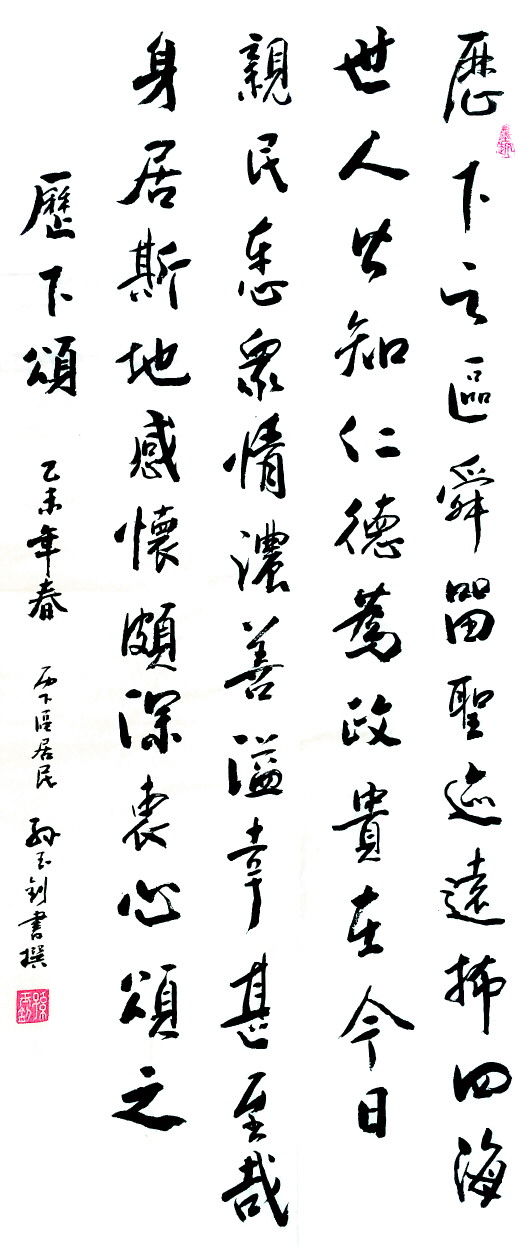 歷下之區舜畱聖迹遠四海
世人共知仁德為政貴在今日
親民惠眾情濃善溢幸甚至哉
身居斯地感懷頗深衷心頌之
歷下頌 乙未年春 下區居民 孫玉釗書撰
孫玉釗